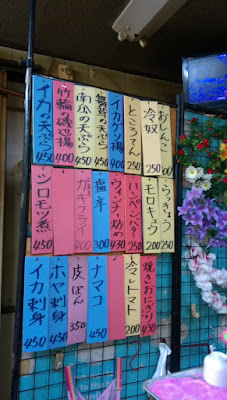 おしんこ 250
冷奴 250
ところてん 250
イカゲソ揚 400
舞茸の天ぷら 450
南瓜の天ぷら 450
竹輪の磯辺揚 400
イカの天ぷら 450
らっきょう 250
モロキュウ 200
ハンペンバター 250
ウィンナー炒め 430
塩辛 300
カキフライ 400
シロモツ煮 450
焼きおにぎり 430
冷しトマト 200
ナマコ 450
皮ぽん 350
ホヤ刺身 450
イカ刺身 450